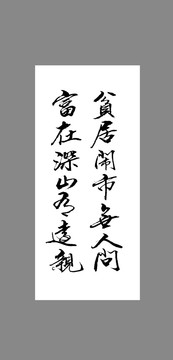 貧居閙市無人問
富在深山有遠親